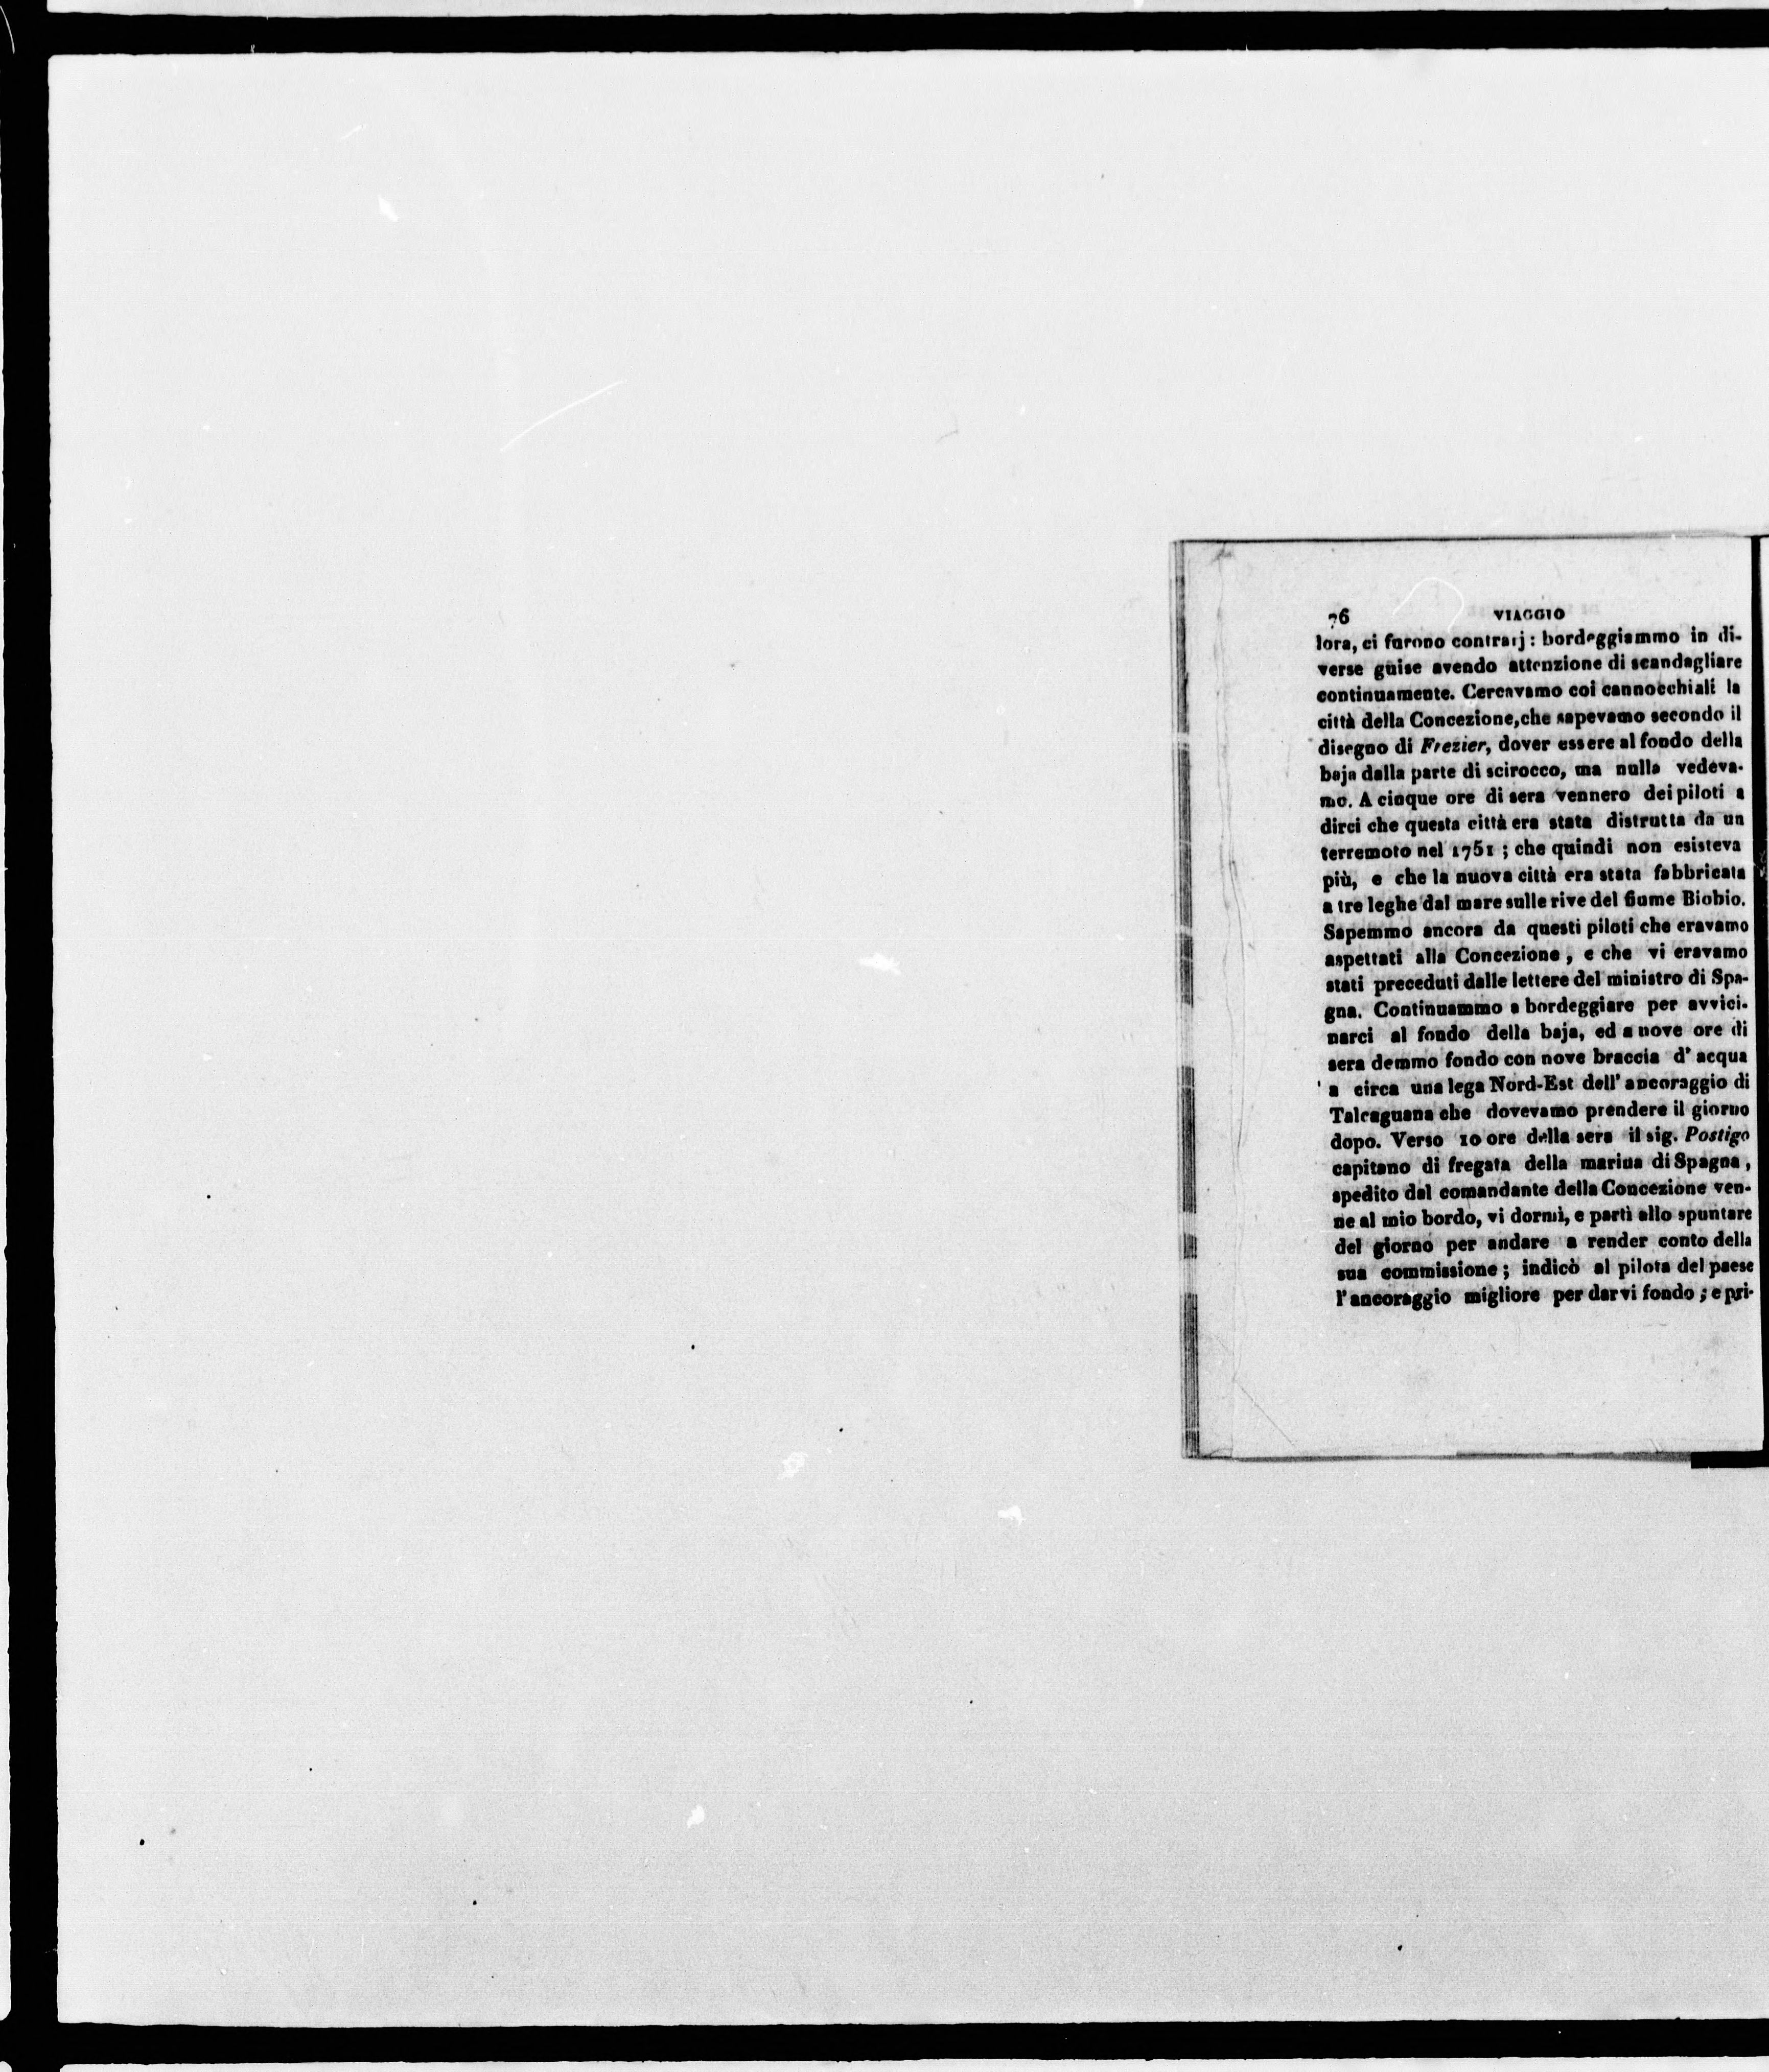 76 VIAGGIO
lora, ci furono contrarj: bordeggiammo in di-
verse guise avendo attenzione di scandagliare
continuamente. Cercavamo coi cannocchiali la
città della Concezione, che sapevamo secondo il
disegno di Frezier, dover essere al fondo della
baja dalla parte di scirocco, ma nulla vedeva-
mo. A cinque ore di sera vennero dei piloti a
dirci che questa città era stata distrutta da un
terremoto nel 1751; che quindi non esisteva
più, e che la nuova città era stata fabbricata
a tre leghe dal mare sulle rive del fiume Biobio.
Sapemmo ancora da questi piloti che eravamo
aspettati alla Concezione, e che vi eravamo
stati preceduti dalle lettere del ministro di Spa-
gna. Continuammo a bordeggiare per avvici-
narci al fondo della baja, ed a nove ore di
sera demmo fondo con nove braccia d' acqua
a circa una lega Nord-Est dell' ancoraggio di
Talcaguana che dovevamo prendere il giorno
dopo. Verso 10 ore della sera il sig. Postigo
capitano di fregata della marina di Spagna,
spedito dal comandante della Concezione ven-
ne al mio bordo, vi dormì, e partì allo spuntare
del giorno per andare a render conto della
sua commissione; indicò al pilota del paese
l' ancoraggio migliore per darvi fondo; e pri-